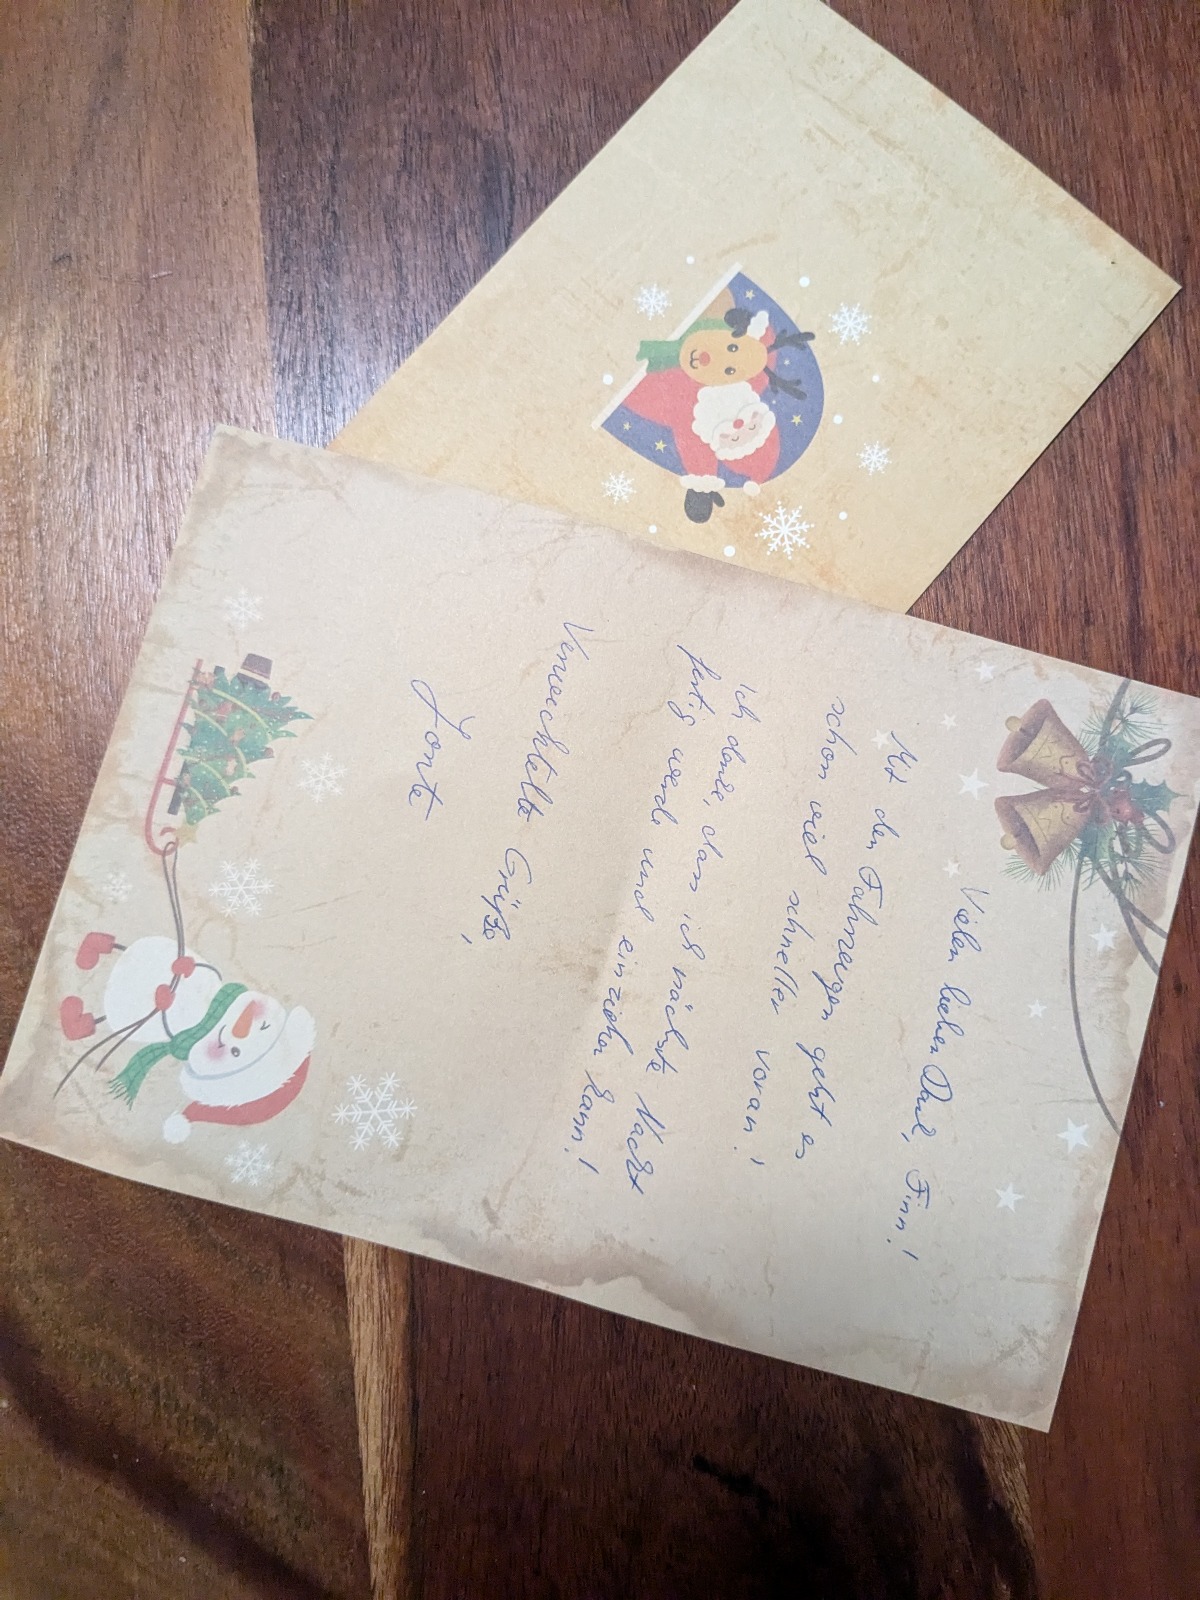 Vielen lieben Dank, Finn!
Mit den Fahrzeugen geht es
schon viel schneller voran!
Ich denke, dass ich nächste Nacht
fertig werde und einziehen kann!
Verwichtelte Grüße,
Jonte